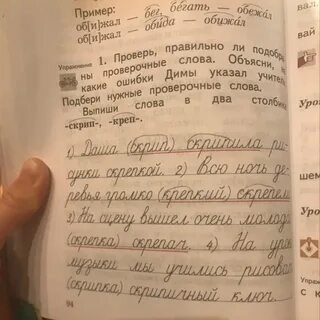 Пример:
об[и]жал — бег, бегать — обежал
об[и]жал — обида — обижал
Упражнение 1. Проверь, правильно ли подобра-
ны проверочные слова. Объясни,
какие ошибки Димы указал учител
Подбери нужные проверочные слова.
Выпиши слова в два столбик
-скрип-, -креп-.
1) Даша (скрип) скрипила ри-
сунки скрепкой. 2) Всю ночь де-
ревья громко (крепкий) скрепели
3) На сцену вышел очень молодо
(скрепка) скрепач. 4) На урок
музыки мы учились рисоват
(скрипка) скрипичный ключ.
94
вай
Уро
шем
Уро
Упражнение
С К